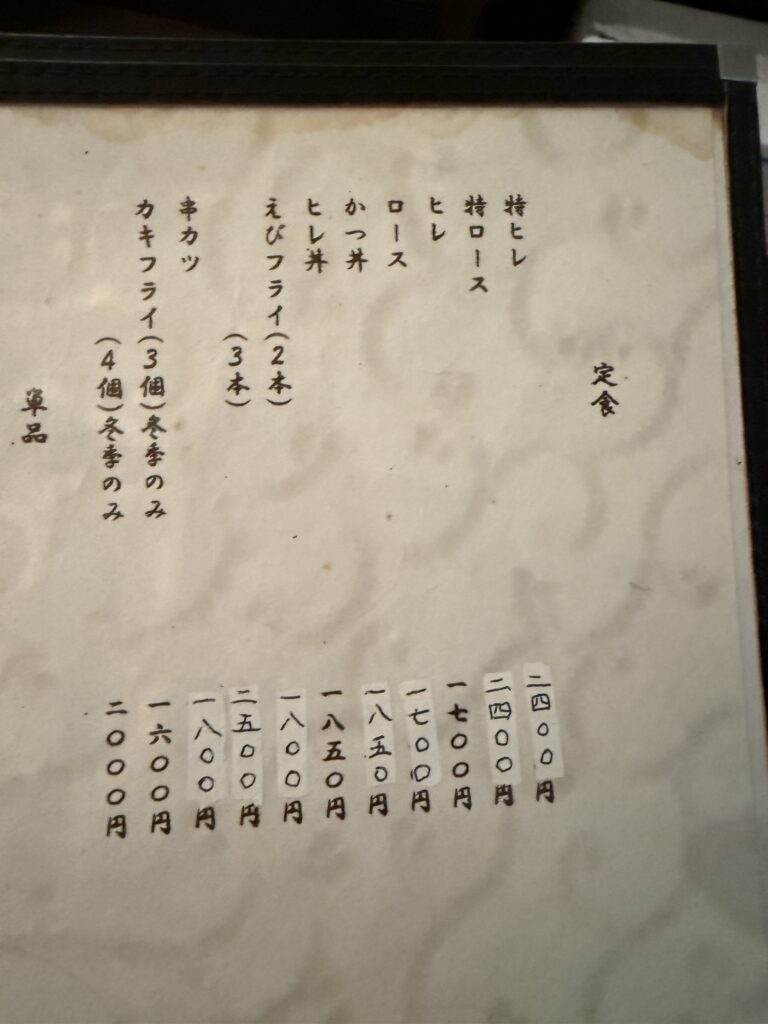 定食
特ヒレ 二四〇〇円
特ロース 二四〇〇円
ヒレ 一七〇〇円
ロース 一七〇〇円
かつ丼 一八五〇円
ヒレ丼 一八五〇円
えびフライ(2本) 一八〇〇円
(3本) 二五〇〇円
串カツ 一八〇〇円
カキフライ(3個)冬季のみ 一六〇〇円
(4個)冬季のみ 二〇〇〇円
單品